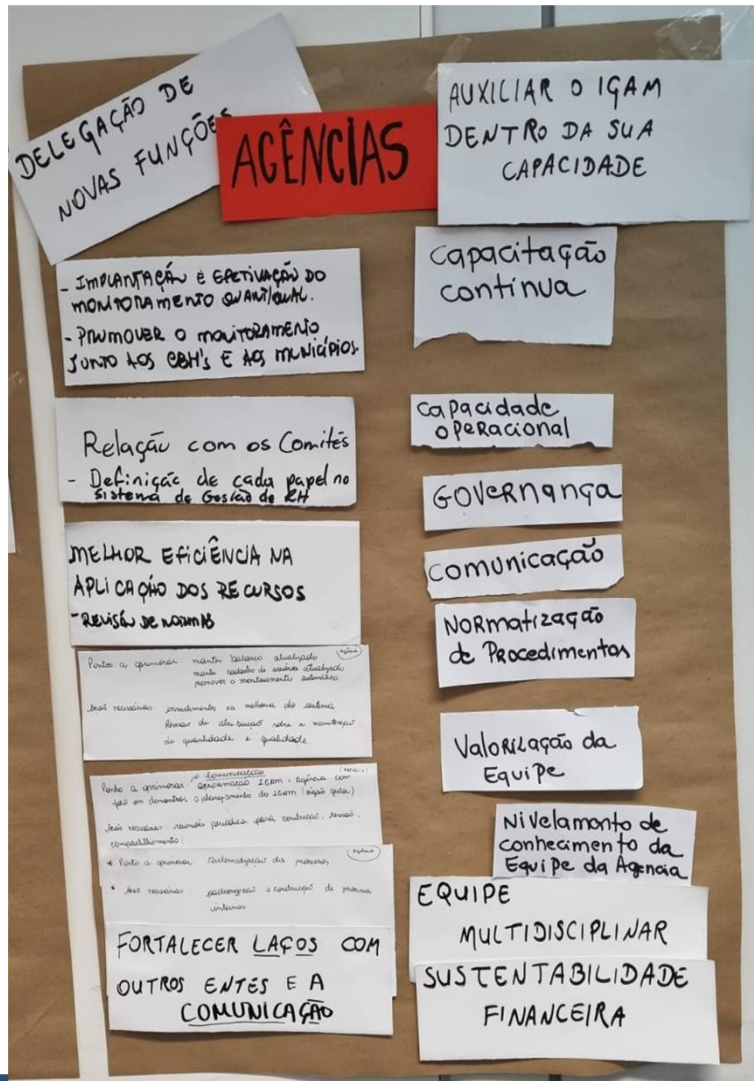 DELEGAÇÃO DE
NOVAS FUNÇÕES
AGÊNCIAS
AUXILIAR O IGAM
DENTRO DA SUA
CAPACIDADE
- IMPLANTAÇÃO E EFETIVAÇÃO DO
MONITORAMENTO QUANT/QUAL.
- PROMOVER O MONITORAMENTO
JUNTO AOS CBH'S E AOS MUNICÍPIOS.
Relação com os Comitês
- Definição de cada papel no
Sistema de Gestão de RH
MELHOR EFICIÊNCIA NA
APLICAÇÃO DOS RECURSOS
- REVISÃO DE NORMAS
Pontos a aprimorar manter balanço atualizado
manter cadastro de usuários atualizado
promover o monitoramento automático
investimento na melhoria do sistema
Revisão de atribuição sobre a
de quantidade e qualidade
comunicação
Ponto a aprimorar aproximação IGAM, agência com
foco em demonstrar o planejamento do IGAM
reuniões periódicas para construção, revisão,
compartilhamento
* Ponto a aprimorar Sistematização dos processos
padronização e construção de processos
internos
FORTALECER LAÇOS COM
OUTROS ENTES E A
COMUNICAÇÃO
Capacitação
contínua
capacidade
operacional
GOVERNANÇA
comunicação
NORMATIZAÇÃO
de Procedimentos
Valorização da
Equipe
Nivelamento de
conhecimento da
Equipe da Agencia
EQUIPE
MULTIDISCIPLINAR
SUSTENTABILIDADE
FINANCEIRA